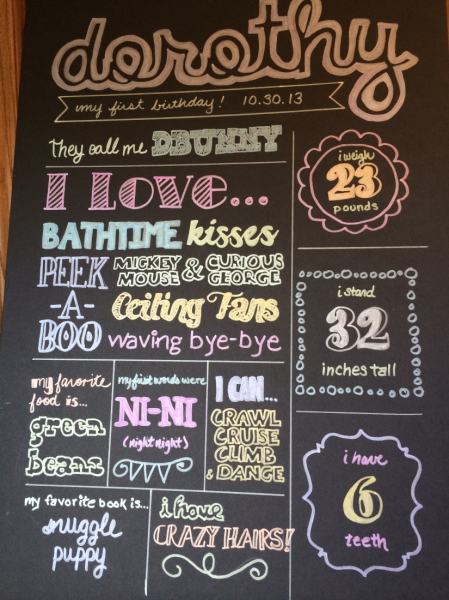 dorothy
my first birthday! 10.30.13
They call me DBUNNY
I LOVE...
BATHTIME kisses
PEEK
-A-
BOO
MICKEY
MOUSE
&
CURIOUS
GEORGE
Ceiling Fans
waving bye-bye
i weigh
23
pounds
i stand
32
inches tall
my favorite
food is...
green
beans
my first words were
NI-NI
(night night)
I CAN...
CRAWL
CRUISE
CLIMB
& DANCE
i have
6
teeth
my favorite book is...
snuggle
puppy
i have
CRAZY HAIRS!